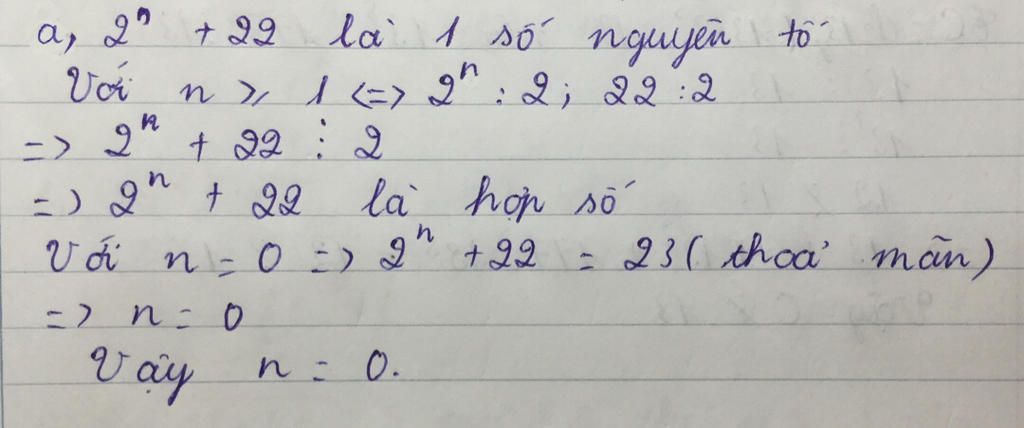 a, 2ⁿ + 22 là 1 số nguyên tố
Với n ≥ 1 <=> 2ⁿ : 2; 22 : 2
=> 2ⁿ + 22 ⋮ 2
=> 2ⁿ + 22 là hợp số
Với n = 0 => 2ⁿ + 22 = 23 ( thoả mãn)
=> n = 0
Vậy n = 0.